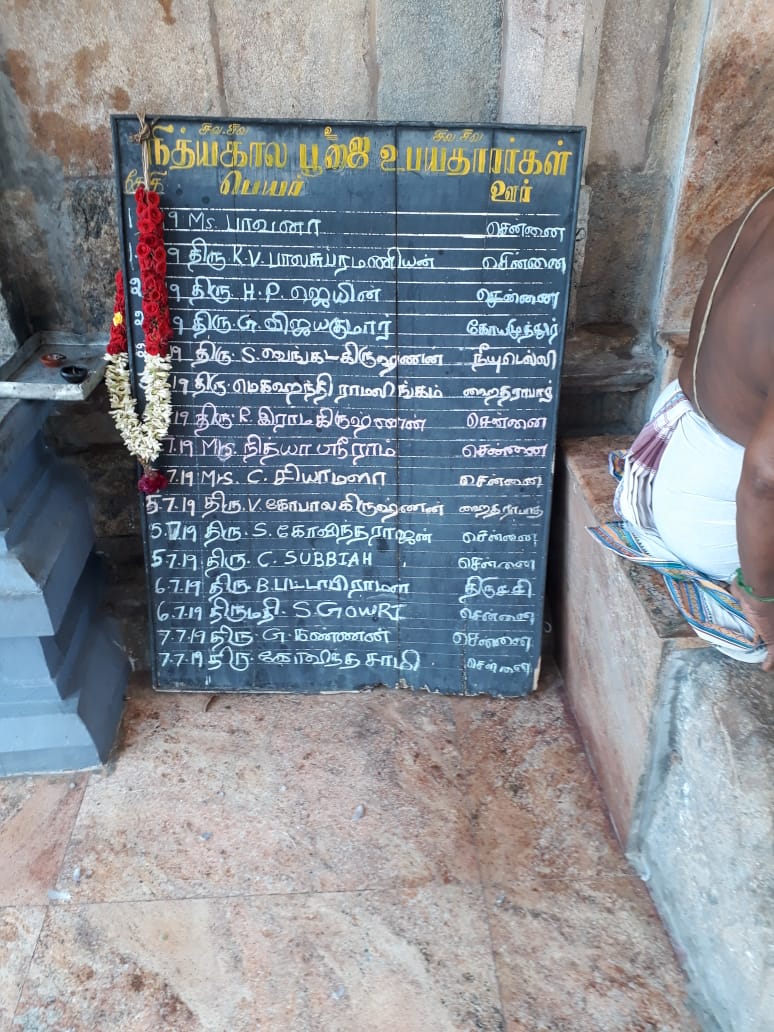 சிவ.சிவ உ சிவ சிவ
நித்யகால பூஜை உபயதாரர்கள்
தேதி பெயர் ஊர்
Ms. பாவனா சென்னை
திரு K.V. பாலசுப்ரமணியன் சென்னை
திரு. H.P. ஜெயின் சென்னை
திரு. G. விஜயகுமார் கோயமுத்தூர்
திரு. S. வெங்கட கிருஷ்ணன் நியுடெல்லி
திரு. ராமலிங்கம் ஹைதராபாத்
7.19 திரு. R. இராமகிருஷ்ணன் சென்னை
7.19 Mrs. நித்யா ஸ்ரீராம் சென்னை
7.19 Mrs. C. சியாமளா சென்னை
5.7.19 திரு. V. கோபாலகிருஷ்ணன் ஹைதராபாத்
5.7.19 திரு. S. கோவிந்தராஜன் சென்னை
5.7.19 திரு. C. SUBBIAH சென்னை
6.7.19 திரு. B. பட்டாபிராமன் திருச்சி
6.7.19 திருமதி. S. GOWRI சென்னை
7.7.19 திரு. G. கண்ணன் சென்னை
7.7.19 திரு. கோவிந்த சாமி சென்னை